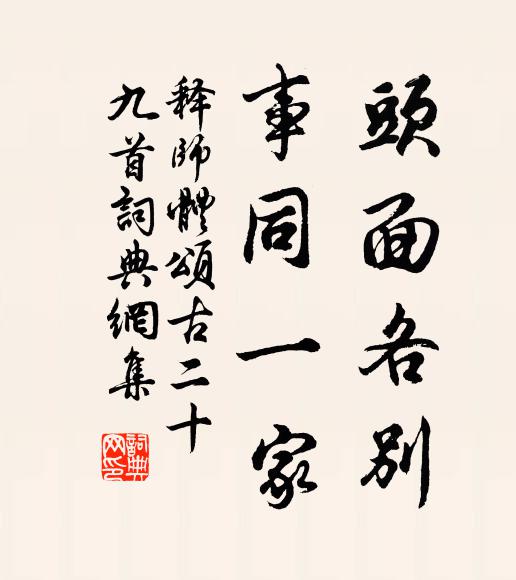 頭面各别
事同一家
释師體頌古二十
九首詞典網集
詞典网印